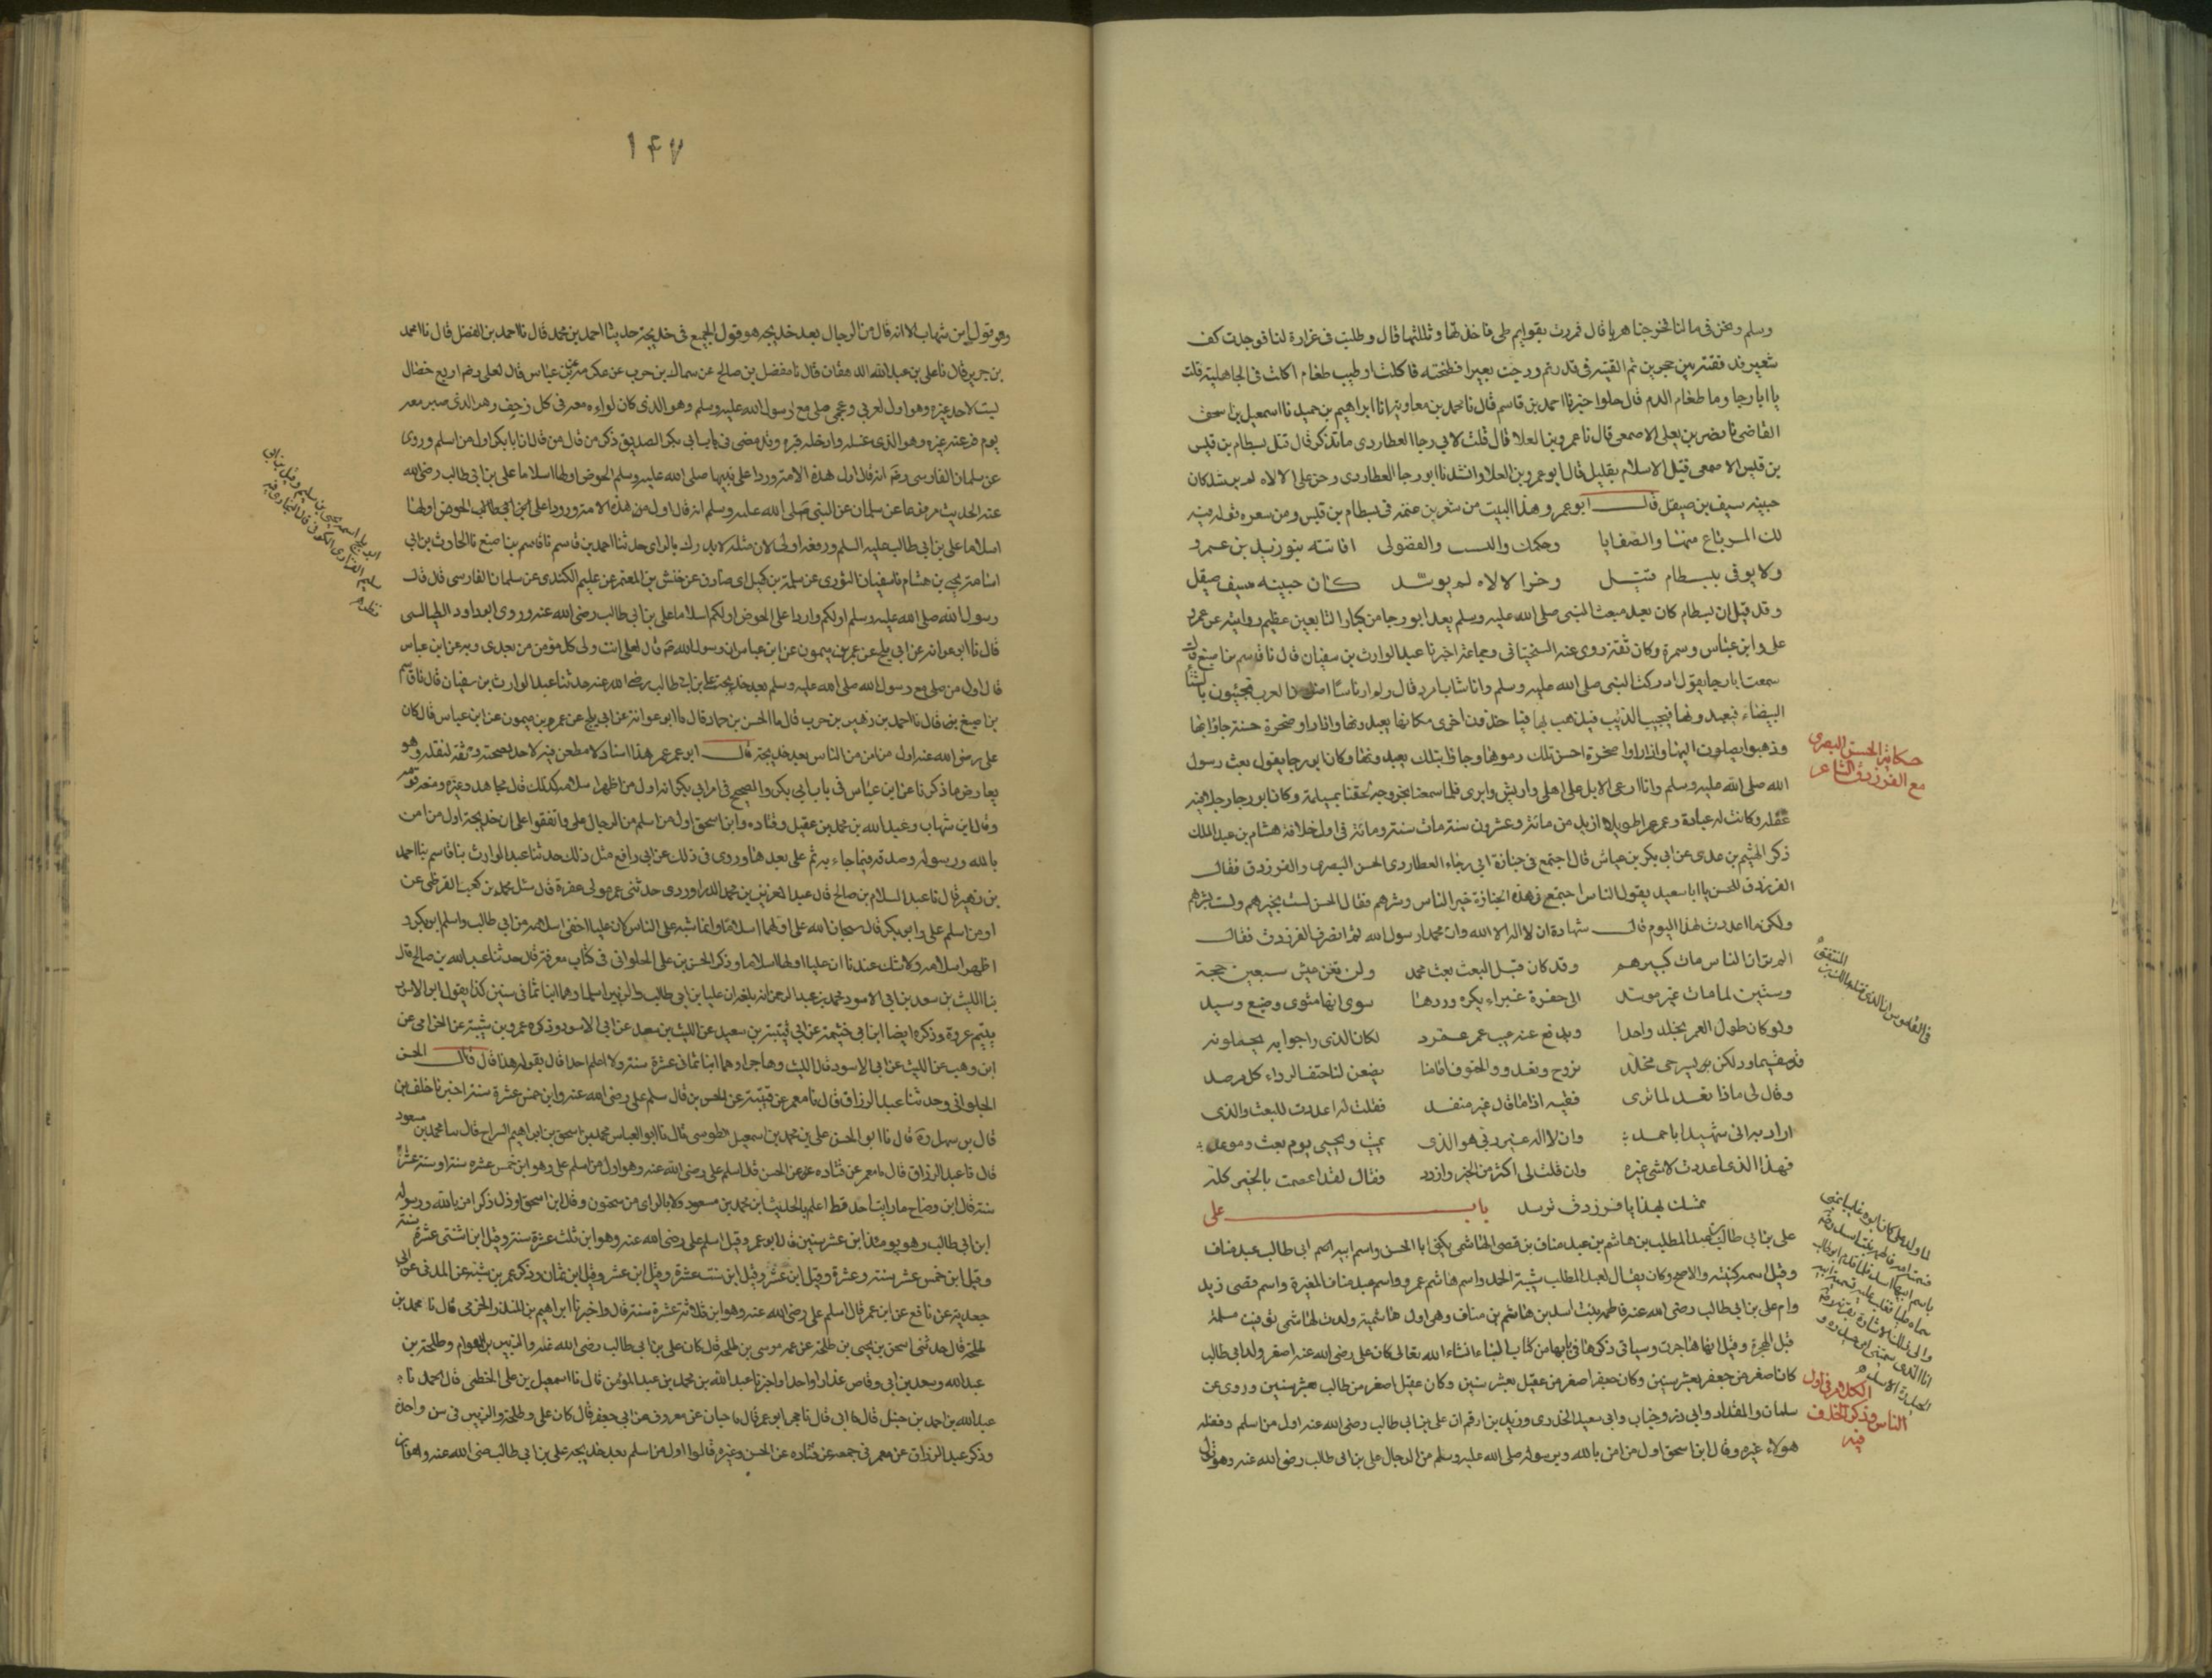 وسلم ونحن في ما لنا فخرجنا هربا قال فمررت بقوايم ظبي فاخذتها وبللتها قال وطلبت في غرارة لنا فوجدت كف
شعير فدققته بين حجرين ثم القيته في قدر ثم ودجت بعيرا فطبخته فاكلت اطيب طعام اكلت في الجاهلية قلت
يا ابا رجا وما طعام الدم قال حلو اخبرنا احمد بن قاسم قال نا محمد بن معاوية نا ابراهيم بن جميل نا اسمعيل بن اسحق
القاضي نا نصر بن علي الاصمعي قال نا عمرو بن العلا قال قلت لابي رجا العطاردي ما تذكر قال قتل بسطام بن قيس
بن قيس الاصمعي قتل الاسلام بقليل قال ابو عمرو بن العلا وانشدنا ابو رجا العطاردي وخر على الالاه لم يوسد كان
جبينه سيف صيقل قال ابو عمر وهذا البيت من شعر بن عنمة في بسطام بن قيس ومن شعره قوله فيه
لك المرباع منها والصفايا وحكمك والنسب والفضول افاتته بنو زيد بن عمرو
ولا يوفي ببسطام قتيل وخر الالاه لم يوسد كان جبينه سيف صيقل
وقد قيل ان بسطام كان بعد مبعث النبي صلى الله عليه وسلم يعد ابو رجا من كبار التابعين عظيم روايته عن عمر و
علي وابن عباس وسمرة وكان ثقة روى عنه السختياني وجماعة اخبرنا عبد الوارث بن سفيان قال نا قاسم بن اصبغ قال
سمعت ابا رجا يقول ادركت النبي صلى الله عليه وسلم وانا شاب امرد قال ولم ار ناسا اضل من العرب يجيئون بالشاة
البيضاء فيعبدونها فيجيء الذئب فيذهب بها فياخذون اخرى مكانها يعبدونها واذا راوا صخرة حسنة جاؤا بها
وذهبوا يصلون اليها واذا راوا صخرة احسن من تلك رموها وجاؤا بتلك يعبدونها وكان ابو رجا يقول بعث رسول
الله صلى الله عليه وسلم وانا ارعى الابل على اهلي واريش وابرى فلما سمعنا بخروجه لحقنا بمسيلمة وكان ابو رجا رجلا فيه
غفلة وكانت له عبادة وعمر عمرا طويلا ازيد من مائة وعشرون سنة مات سنة ومائة في اول خلافة هشام بن عبد الملك
ذكر الهيثم بن عدي عن ابي بكر بن عياش قال اجتمع في جنازة ابي رجاء العطاردي الحسن البصري والفرزدق فقال
الفرزدق للحسن يا ابا سعيد يقول الناس اجتمع في هذه الجنازة خير الناس وشرهم فقال الحسن لست بخيرهم ولست بشرهم
ولكن ما اعددت لهذا اليوم قال شهادة ان لا اله الا الله وان محمدا رسول الله ثم انصرف الفرزدق فقال
الم تر ان الناس مات كبيرهم وقد كان قبل البعث بعث محمد ولن تغن عيش سبعين حجة
وستين لما مات غير موسد الى حفرة غبراء يكره وردها سوى انها مثوى وضيع وسيد
ولو كان طول العمر يخلد واحدا ويدفع عنه عيب عمر عمرد لكان الذي راجوا به يحملونه
مقيما ولكن ليس حي مخلد نروح ونغدو والحتوف امامنا يضعن لنا حتف الرداء كل مرصد
وقال لي ماذا تعد لما ترى فقيه اذا ما قال غير مفند فقلت له اعددت للبعث والذي
اراد به اني شهيد باحمد وان لا اله غير ربي هو الذي يميت ويحيي يوم بعث وموعد
فهذا الذي اعددت لا شي غيره وان قلت لي اكثر من الخير وازدد فقال لقد اعصمت بالخير كله
تمسك بهذا يا فرزدق ترشد باب علي
علي بن ابي طالب بن عبد المطلب بن هاشم بن عبد مناف بن قصي الهاشمي يكنى ابا الحسن واسم ابيه اسم ابي طالب عبد مناف
وقيل اسمه كنيته والاصح وكان يقال لعبد المطلب شيبة الحمد واسم هاشم عمرو واسم عبد مناف المغيرة واسم قصي زيد
وام علي بن ابي طالب رضي الله عنه فاطمة بنت اسد بن هاشم بن مناف وهي اول هاشمية ولدت لهاشمي توفيت مسلمة
قبل الهجرة وقيل انها هاجرت وسياتي ذكرها في بابها من كتاب النساء انشاء الله تعالى كان علي رضي الله عنه اصغر ولد ابي طالب
كان اصغر من جعفر بعشر سنين وكان جعفر اصغر من عقيل بعشر سنين وكان عقيل اصغر من طالب بعشر سنين وروي عن
سلمان والمقداد وابي ذر وخباب وابي سعيد الخدري وزيد بن ارقم ان علي بن ابي طالب رضي الله عنه اول من اسلم وفضله
هولاء غيره وقال ابن اسحق اول من امن بالله وبرسوله صلى الله عليه وسلم من الرجال علي بن ابي طالب رضي الله عنه وهو قول
حكاية الحسن البصري
مع الفرزدق الشاعر
الكلام في اول
الناس وذكر الخلاف
فيه
١٤٧
وهو قول ابن شهاب الا انه قال من الرجال بعد خديجة وهو قول الجميع في خديجة حدثنا احمد بن محمد قال نا احمد بن الفضل قال نا محمد
بن جرير قال نا علي بن عبد الله الدهقان قال نا مفضل بن صالح عن سماك بن حرب عن عكرمة عن ابن عباس قال لعلي رضه اربع خصال
ليست لاحد غيره وهو اول عربي وعجمي صلى مع رسول الله عليه وسلم وهو الذي كان لواءه معه في كل زحف وهو الذي صبر معه
يوم فر عنه غيره وهو الذي غسله وادخله قبره وقد مضى في باب ابي بكر الصديق ذكر من قال من قال ان ابا بكر اول من اسلم وروى
عن سلمان الفارسي رضه انه قال اول هذه الامة ورودا على نبيها صلى الله عليه وسلم الحوض اولها اسلاما علي بن ابي طالب رضي الله
عنه الحديث مرفوعا عن سلمان عن النبي صلى الله عليه وسلم انه قال اول من هذه الامة ورودا على ابن ابي طالب الحوض اولها
اسلاما علي بن ابي طالب عليه السلم ورفعه اولى لان مثله لا يدرك بالراى حدثنا احمد بن قاسم نا قاسم بن اصبغ نا الحارث بن ابي
اسامة يحيى بن هشام نا سفيان الثوري عن سلمة بن كهيل ابي صادق عن حنش بن المعتمر عن عليم الكندي عن سلمان الفارسي قال قال
رسول الله صلى الله عليه وسلم اولكم واردا على الحوض اولكم اسلاما علي بن ابي طالب رضي الله عنه وروى ابو داود الطيالسي
قال نا ابو عوانة عن ابي بلج عن عمرو بن ميمون عن ابن عباس ان رسول الله ص قال لعلي انت ولي كل مؤمن من بعدي وبه عن ابن عباس
قال اول من صلى مع رسول الله صلى الله عليه وسلم بعد خديجة علي بن ابي طالب رضي الله عنه حدثنا عبد الوارث بن سفيان قال نا قاسم
بن اصبغ قال نا احمد بن زهير بن حرب قال نا الحسن بن حماد قال نا ابو عوانة عن ابي بلج عن عمرو بن ميمون عن ابن عباس قال كان
علي رضي الله عنه اول من امن من الناس بعد خديجة قال ابو عمر هذا اسناد لا مطعن فيه لاحد لصحته وثقة نقلته وهو
يعارض ما ذكرنا عن ابن عباس في باب ابي بكر والصحيح في امر ابي بكر انه اول من اظهر اسلامه كذلك قال مجاهد وغيره ومنعه قومه
وقال ابن شهاب وعبد الله بن محمد بن عقيل وقتاده وابن اسحق اول من اسلم من الرجال علي واتفقوا على ان خديجة اول من امن
بالله ورسوله وصدقه فيما جاء به ثم علي بعدها وروي في ذلك عن ابي رافع مثل ذلك حدثنا عبد الوارث بنا قاسم بنا احمد
بن زهير قال نا عبد السلام بن صالح قال عبد العزيز بن محمد الدراوردي حدثني عمر مولى غفرة قال سئل محمد بن كعب القرظي عن
اول من اسلم علي وابو بكر قال سبحان الله علي اولهما اسلاما وانما شبه على الناس كان عليا اخفى اسلامه من ابي طالب واسلم ابو بكر و
اظهر اسلامه ولا شك عندنا ان عليا اولها اسلاما وذكر الحسن بن علي الحلواني في كتاب معرفة قال حدثنا عبد الله بن صالح قال
بنا الليث بن سعد بن ابي الاسود محمد بن عبد الرحمن انه بلغه ان عليا بن ابي طالب والزبير اسلما وهما ابنا ثماني سنين كذا يقول ابو الاسود
يتيم عروة وذكره ايضا ابن ابي خيثمة عن ابي قتيبة بن سعيد عن الليث بن سعد عن ابي الاسود وذكره عمرو بن شيبة عن الحزامي عن
ابن وهب عن الليث عن ابي الاسود قال الليث وهاجرا وهما ابنا ثمان عشرة سنة ولا اعلم احدا قال بقوله هذا قال قال الحسن
الحلواني وحدثنا عبد الرزاق قال نا معمر عن قتيبة عن الحسن قال اسلم علي رضي الله عنه وابن خمس عشرة سنة اخبرنا خلف بن
قال بن سهل ره قال نا ابو الحسن علي بن محمد بن اسمعيل الطوسي قال نا ابو العباس محمد بن اسحق بن ابراهيم السراج قال نا محمد بن مسعود
قال نا عبد الرزاق قال نا معمر عن قتاده عن الحسن قال اسلم علي رضي الله عنه وهو اول من اسلم علي وهو ابن خمس عشره سنة او ستة عشرة
سنة قال ابن وضاح ما رايت احد قط اعلم بالحديث ابن محمد بن مسعود ولا بالراى من سحنون وقال ابن اسحق اول ذكر امن بالله ورسوله
ابن ابي طالب وهو يومئذ ابن عشر سنين قال ابو عمر وقيل اسلم علي رضي الله عنه وهو ابن ثلث عشرة سنة وقيل ابن اثنتي عشرة سنة
وقيل ابن خمس عشر سنة وعشرة وقيل ابن عشر وقيل ابن ستة عشرة وقيل ابن عشر وقيل ابن ثمان وذكر عمر بن شبه عن المدني عن ابي
جعدبة عن نافع عن ابن عمر قال اسلم علي رضي الله عنه وهو ابن ثلاثة عشرة سنة قال واخبرنا ابراهيم بن المنذر الحزمي قال نا محمد بن
طلحة قال حدثني اسحق بن يحيى بن طلحة عن عمه موسى بن طلحة قال كان علي بن ابي طالب رضي الله عنه والزبير بن العوام وطلحة بن
عبد الله وسعد بن ابي وقاص عذارا واحدا واخبرنا عبد الله بن محمد بن عبد المؤمن قال نا اسمعيل بن علي الخطمي قال احمد نا
عبد الله بن احمد بن حنبل قال نا ابي قال نا حجر ابو عمر قال نا حبان عن معروف عن ابي جعفر قال كان علي وطلحة والزبير في سن واحدة
وذكر عبد الرزاق عن معمر في جمعه عن قتاده عن الحسن وغيره قالوا اول من اسلم بعد خديجه علي بن ابي طالب رضي الله عنه وهو ابن